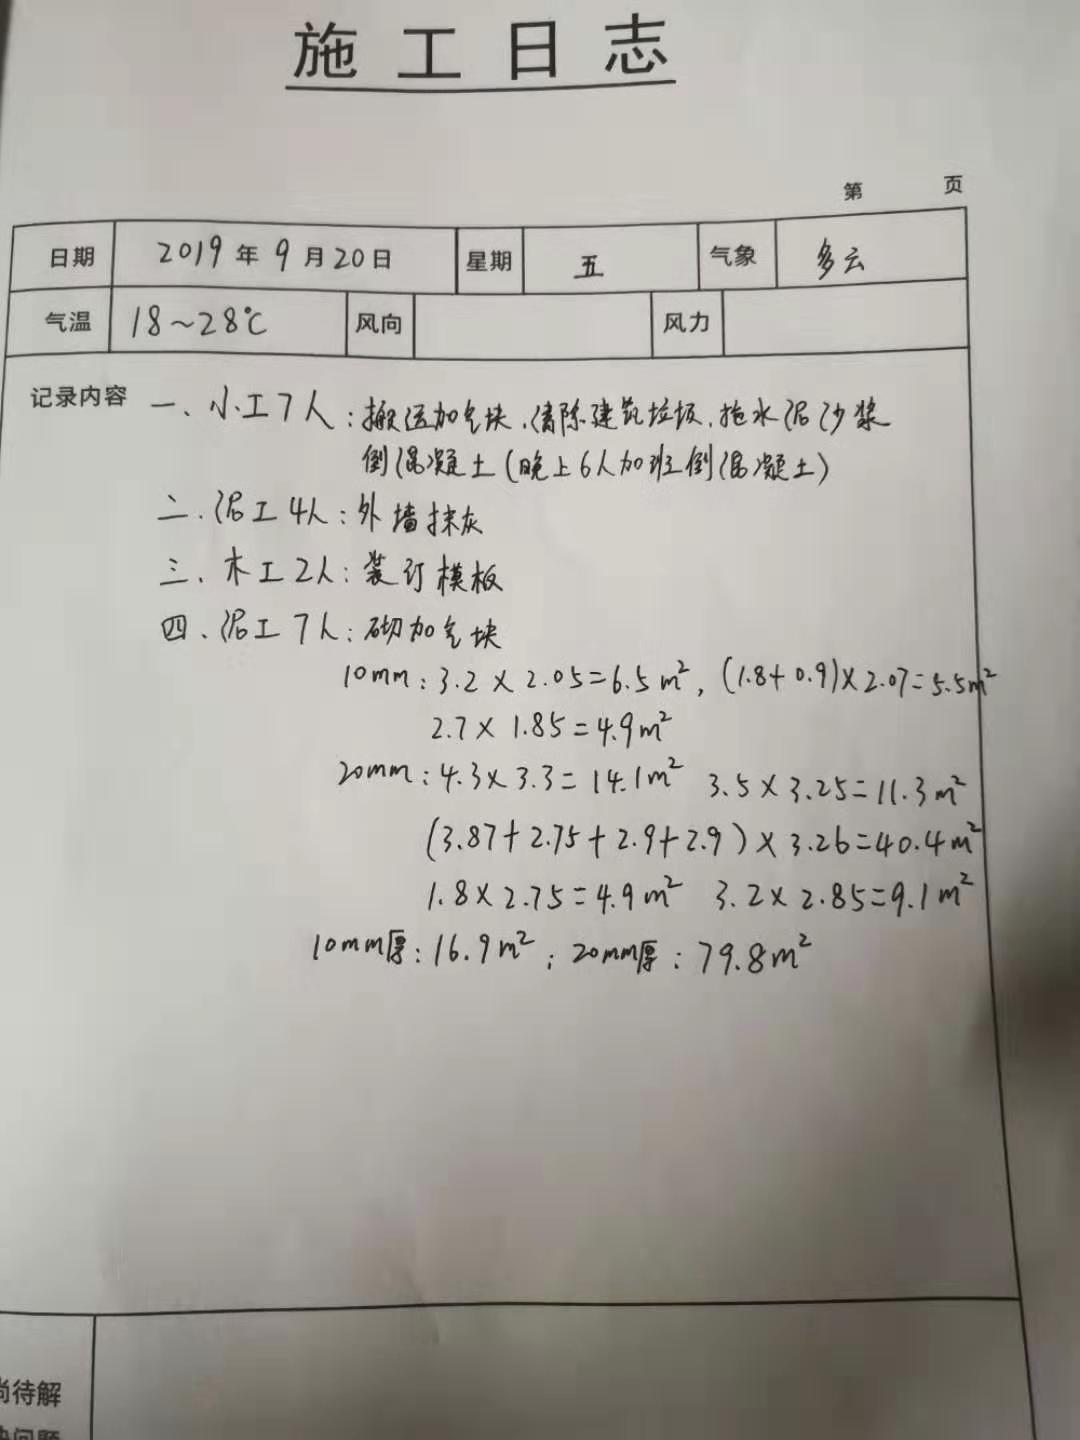 施工日志
第 页
日期 2019年9月20日 星期 五 气象 多云
气温 18~28℃ 风向 风力
记录内容 一、小工7人:搬运加气块、清除建筑垃圾、拖水泥沙浆
倒混凝土(晚上6人加班倒混凝土)
二、泥工4人:外墙抹灰
三、木工2人:装订模板
四、泥工7人:砌加气块
10mm:3.2×2.05=6.5m²,(1.8+0.9)×2.07=5.5m²
2.7×1.85=4.9m²
20mm:4.3×3.3=14.1m² 3.5×3.25=11.3m²
(3.87+2.75+2.9+2.9)×3.26=40.4m²
1.8×2.75=4.9m² 3.2×2.85=9.1m²
10mm厚:16.9m²;20mm厚:79.8m²
尚待解
决问题